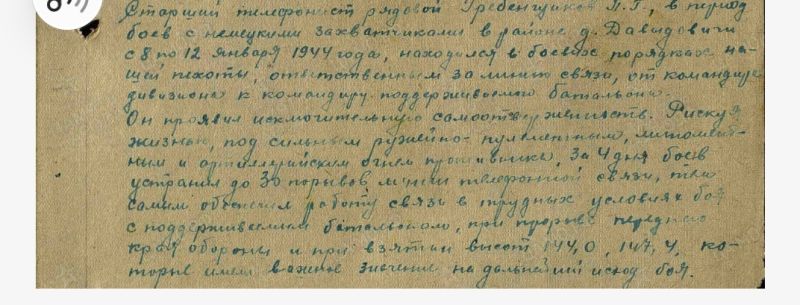 Старший телефонист рядовой Гребенщиков П.Г., в период
боев с немецкими захватчиками в районе д. Давидовичи
с 8 по 12 января 1944 года, находился в боевых порядках на-
шей пехоты, ответственным за линию связи, от командира
дивизиона к командиру поддерживаемого батальона.
Он проявил исключительную самоотверженность. Рискуя
жизнью, под сильным ружейно-пулеметным, миномет-
ным и артиллерийским огнем противника, за 4 дня боев
устранил до 30 порывов линии телефонной связи, тем
самым обеспечил работу связи в трудных условиях боя
с поддерживаемым батальоном, при прорыве переднего
края обороны и при взятии высот 144,0, 147,4, ко-
торые имели важное значение на дальнейший исход боя.